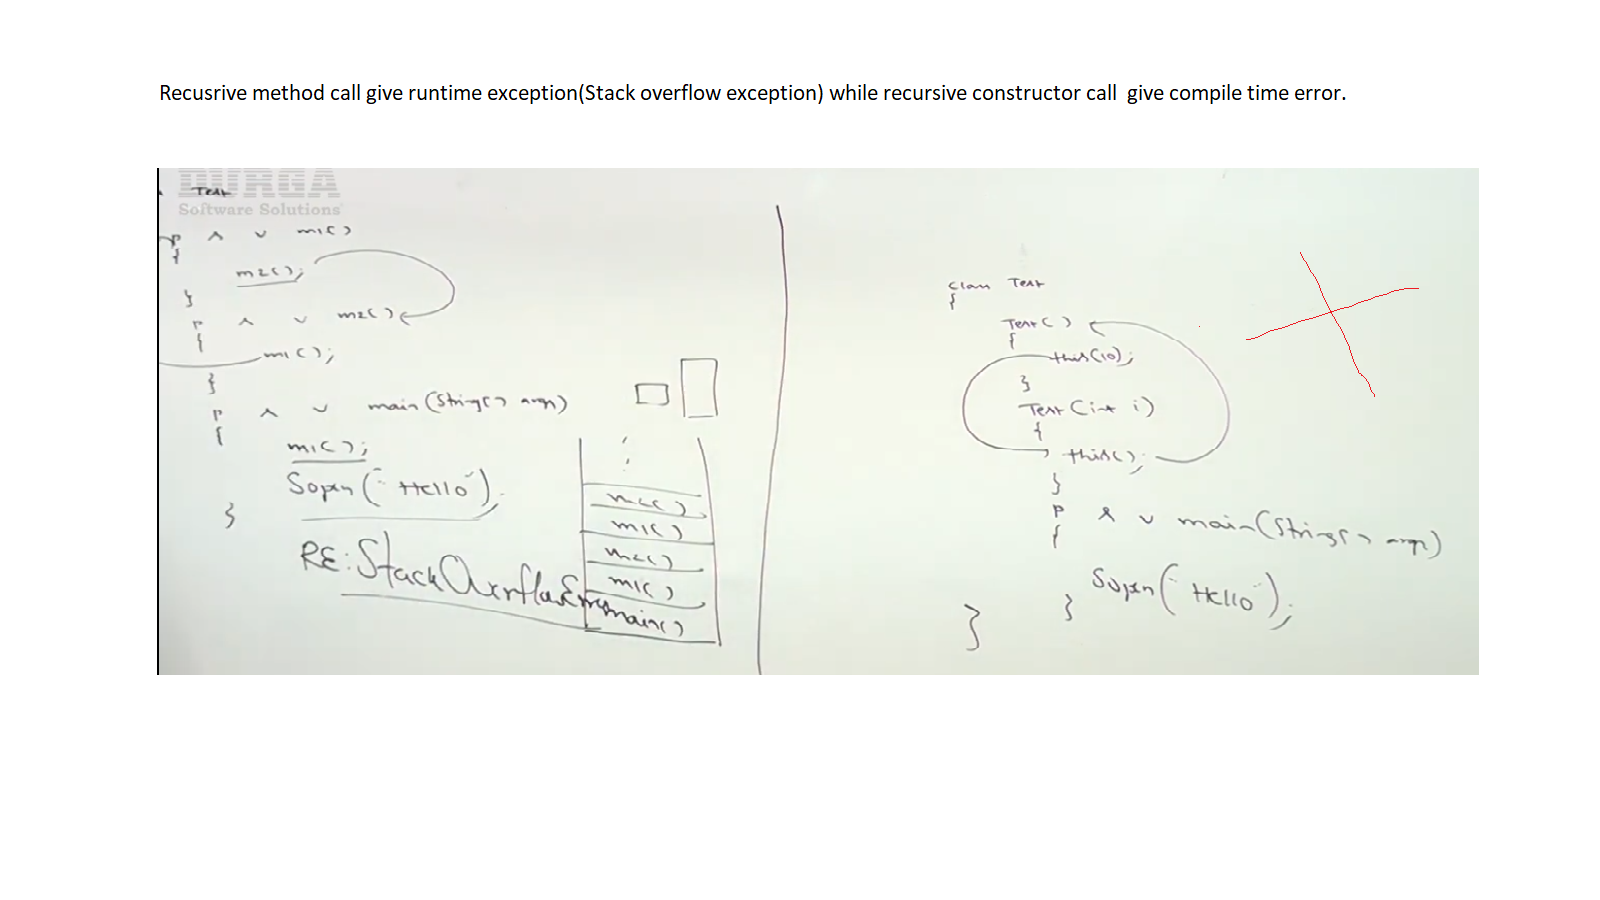 Recusrive method call give runtime exception(Stack overflow exception) while recursive constructor call  give compile time error.
DURGA
Software Solutions
Test
p s v m1()
{
m2();
}
p s v m2()
{
m1();
}
p s v main(String[] args)
{
m1();
Sopln("Hello");
}
RE:StackOverflowError
m2()
m1()
m2()
m1()
main()
class Test
{
Test()
{
this(10);
}
Test(int i)
{
this();
}
p s v main(String[] args)
{
Sopln("Hello");
}
}